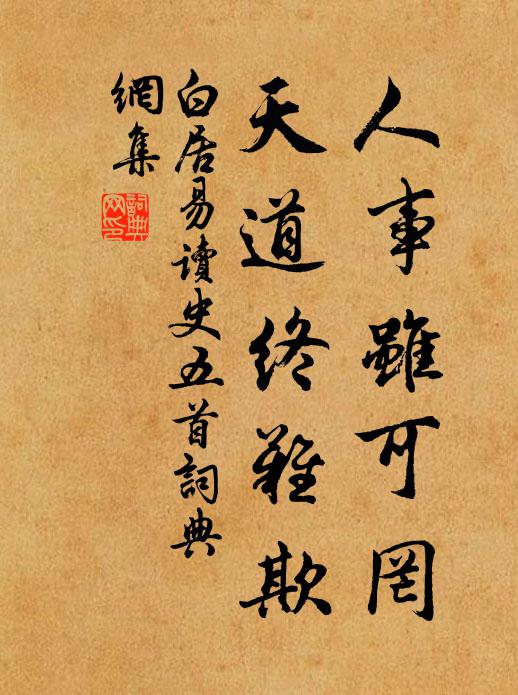 人事雖可罔
天道終難欺
白居易讀史五首詞典
網集
詞典
网印